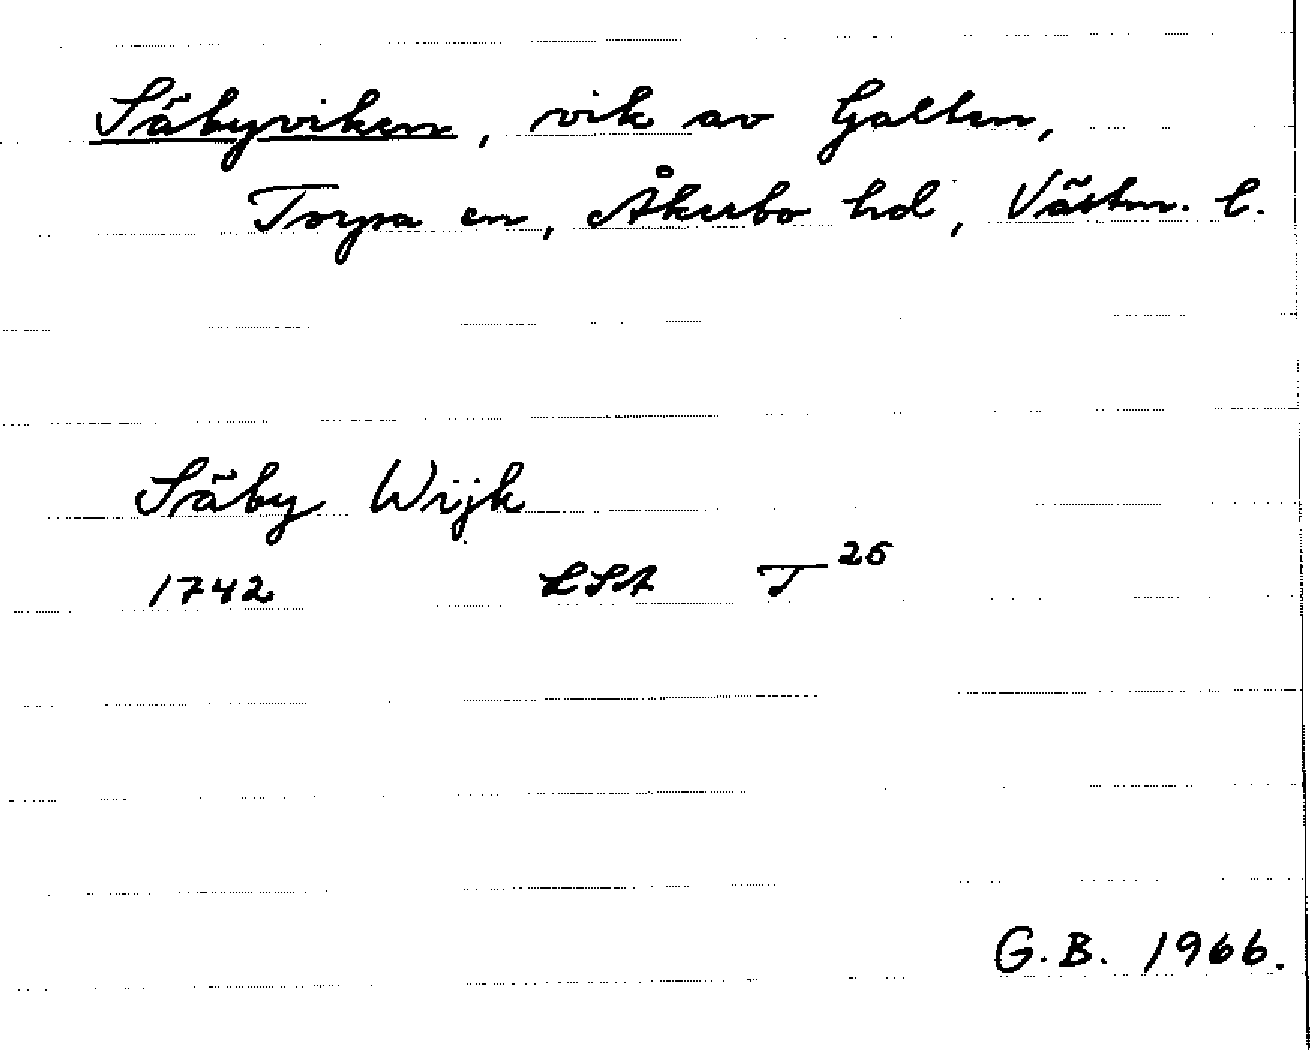 Säbyviken, vik av Galten,
Torpa sn, Åkerbo hd, Västm. l.
Säby Wijk
1742 LSA T 26
G.B. 1966.